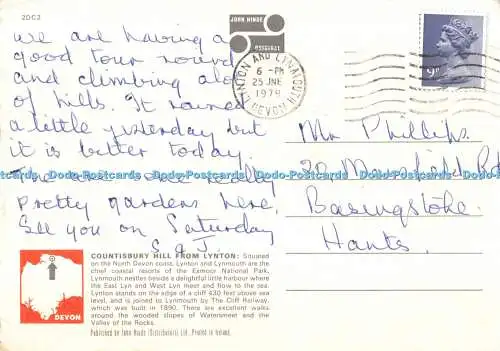 2DC2
JOHN HINDE
ORIGINAL
LYNTON AND LYNMOUTH
6 - PM
25 JNE
1979
DEVON
9P
We are having a
good tour round
and climbing alo
of hills. It rained
a little yesterday but
it is better today.
There are some really
pretty gardens here.
See you on Saturday
S & J.
Mr Phillips
20 Mansfield Rd
Basingstoke.
Hants.
Dodo-Postcards Dodo-Postcards Dodo-Postcards Dodo-Postcards Dodo-Postcards
COUNTISBURY HILL FROM LYNTON: Situated
on the North Devon coast, Lynton and Lynmouth are the
chief coastal resorts of the Exmoor National Park.
Lynmouth nestles beside a delightful little harbour where
the East Lyn and West Lyn meet and flow to the sea.
Lynton stands on the edge of a cliff 430 feet above sea
level, and is joined to Lynmouth by The Cliff Railway,
which was built in 1890. There are excellent walks
around the wooded slopes of Watersmeet and the
Valley of the Rocks.
Published by John Hinde (Distributors) Ltd., Printed in Ireland.
DEVON